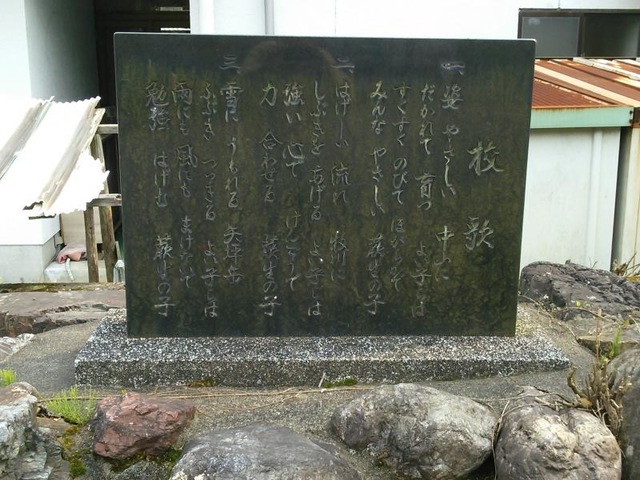 校歌
一 姿 やさしい 中山に
だかれて 育つ よい子は
すくすく のびて ほがらかで
みんな やさしい 蕨生の子
二 はげしい 流れ
しぶきを あげる よい子は
強い 心で
力 合わせる 蕨生の子
三 雪に うもれる 矢坪岳
ふぶき つっきる よい子は
雨にも 風にも まけないで
勉強 はげむ 蕨生の子